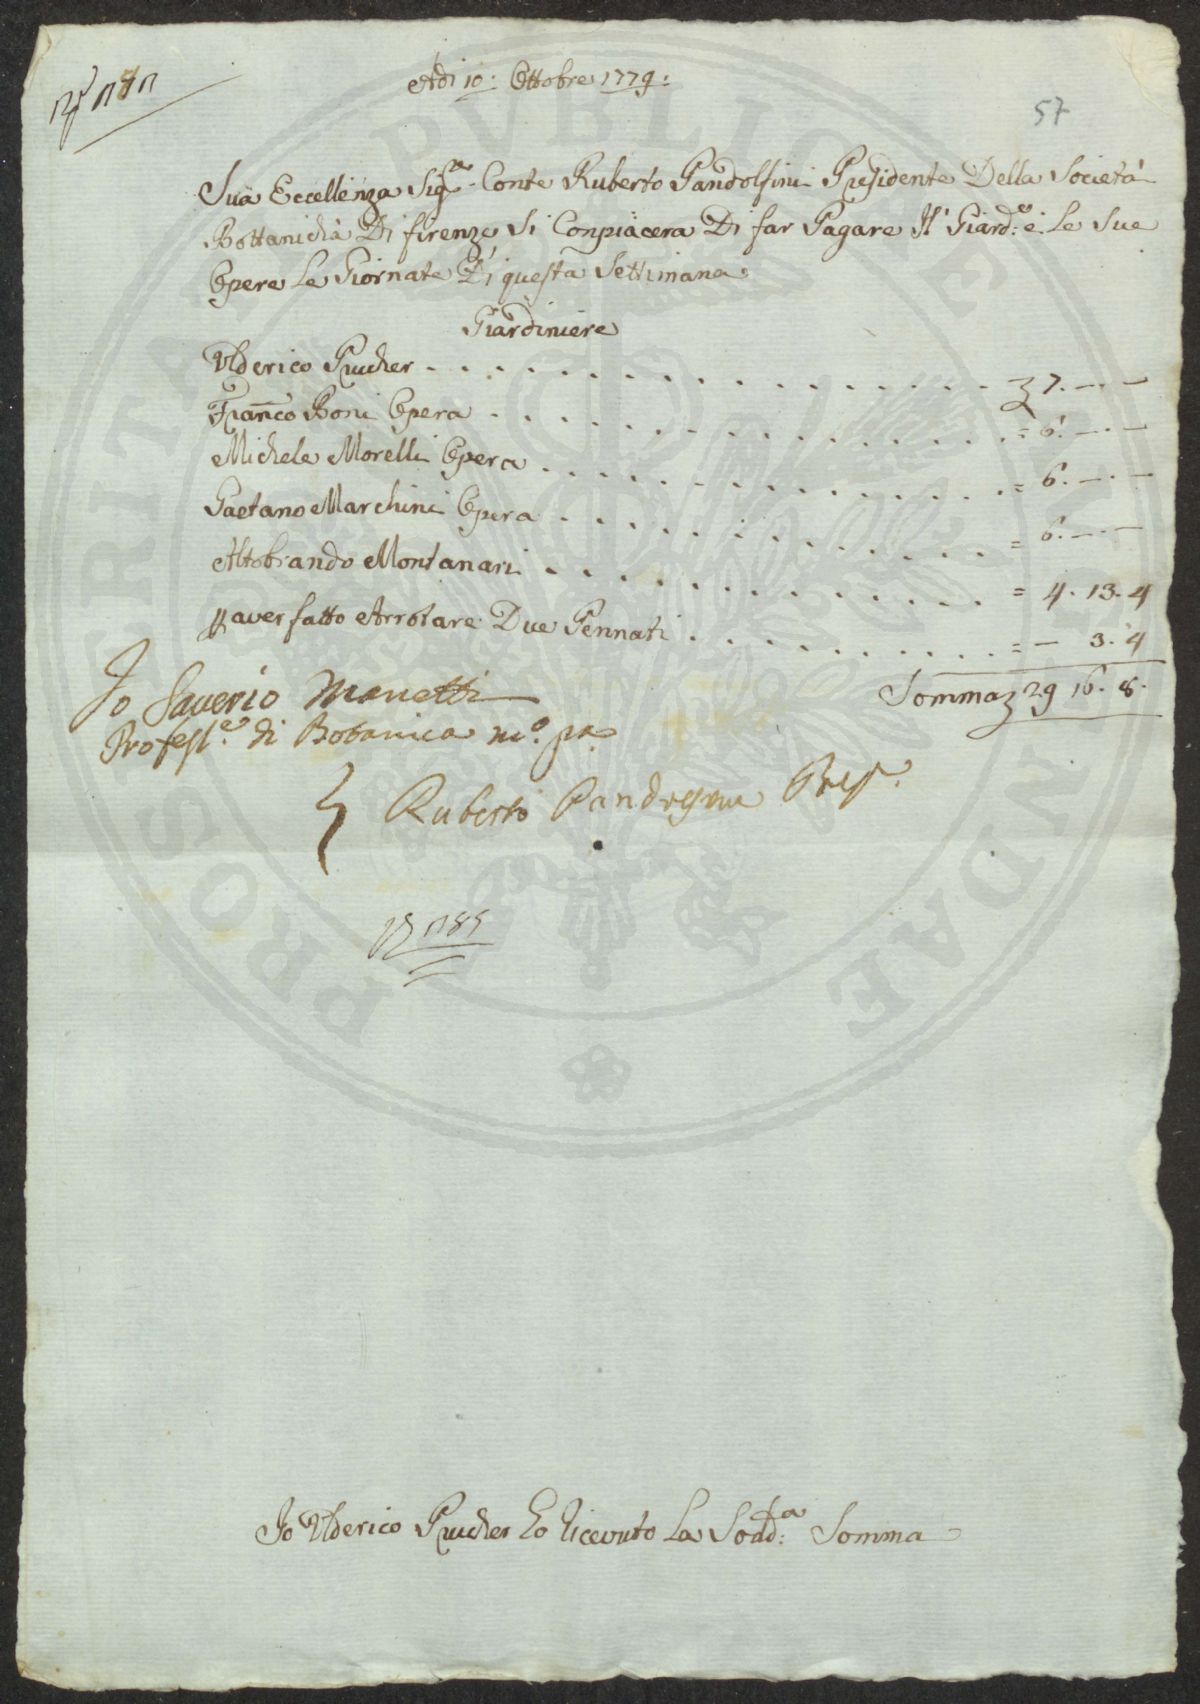 Adi 10: Ottobre 1779:
57
Sua Eccellenza Sig.re Conte Ruberto Pandolfini Presidente Della Società
Bottanicha Di firenze Si Conpiacera Di far Pagare Il Giard.e e Le Sue
Opere Le Giornate Di questa Settimana
Giardiniere
Ulderico Prucher . . . . . . . . . . 7. — . —
Franco Boni Opera . . . . . . . . . . = 6. — . —
Michele Morelli Opera . . . . . . . . . . = 6. — . —
Gaetano Marchini Opera . . . . . . . . . . = 6. — . —
Altobrando Montanari . . . . . . . . . . = 4. 13. 4
p aver fatto Arrotare Due Pennati . . . . . . . . . . = — 3. 4
Somma 29 16. 8.
Io Saverio Manetti
Profess.e di Botanica m.o pa
Ruberto Pandolfini Pres.
1785
Io Ulderico Prucher Ho Ricevuto La Sodd.a Somma
PROSPERITATI PUBLICAE AUGENDAE